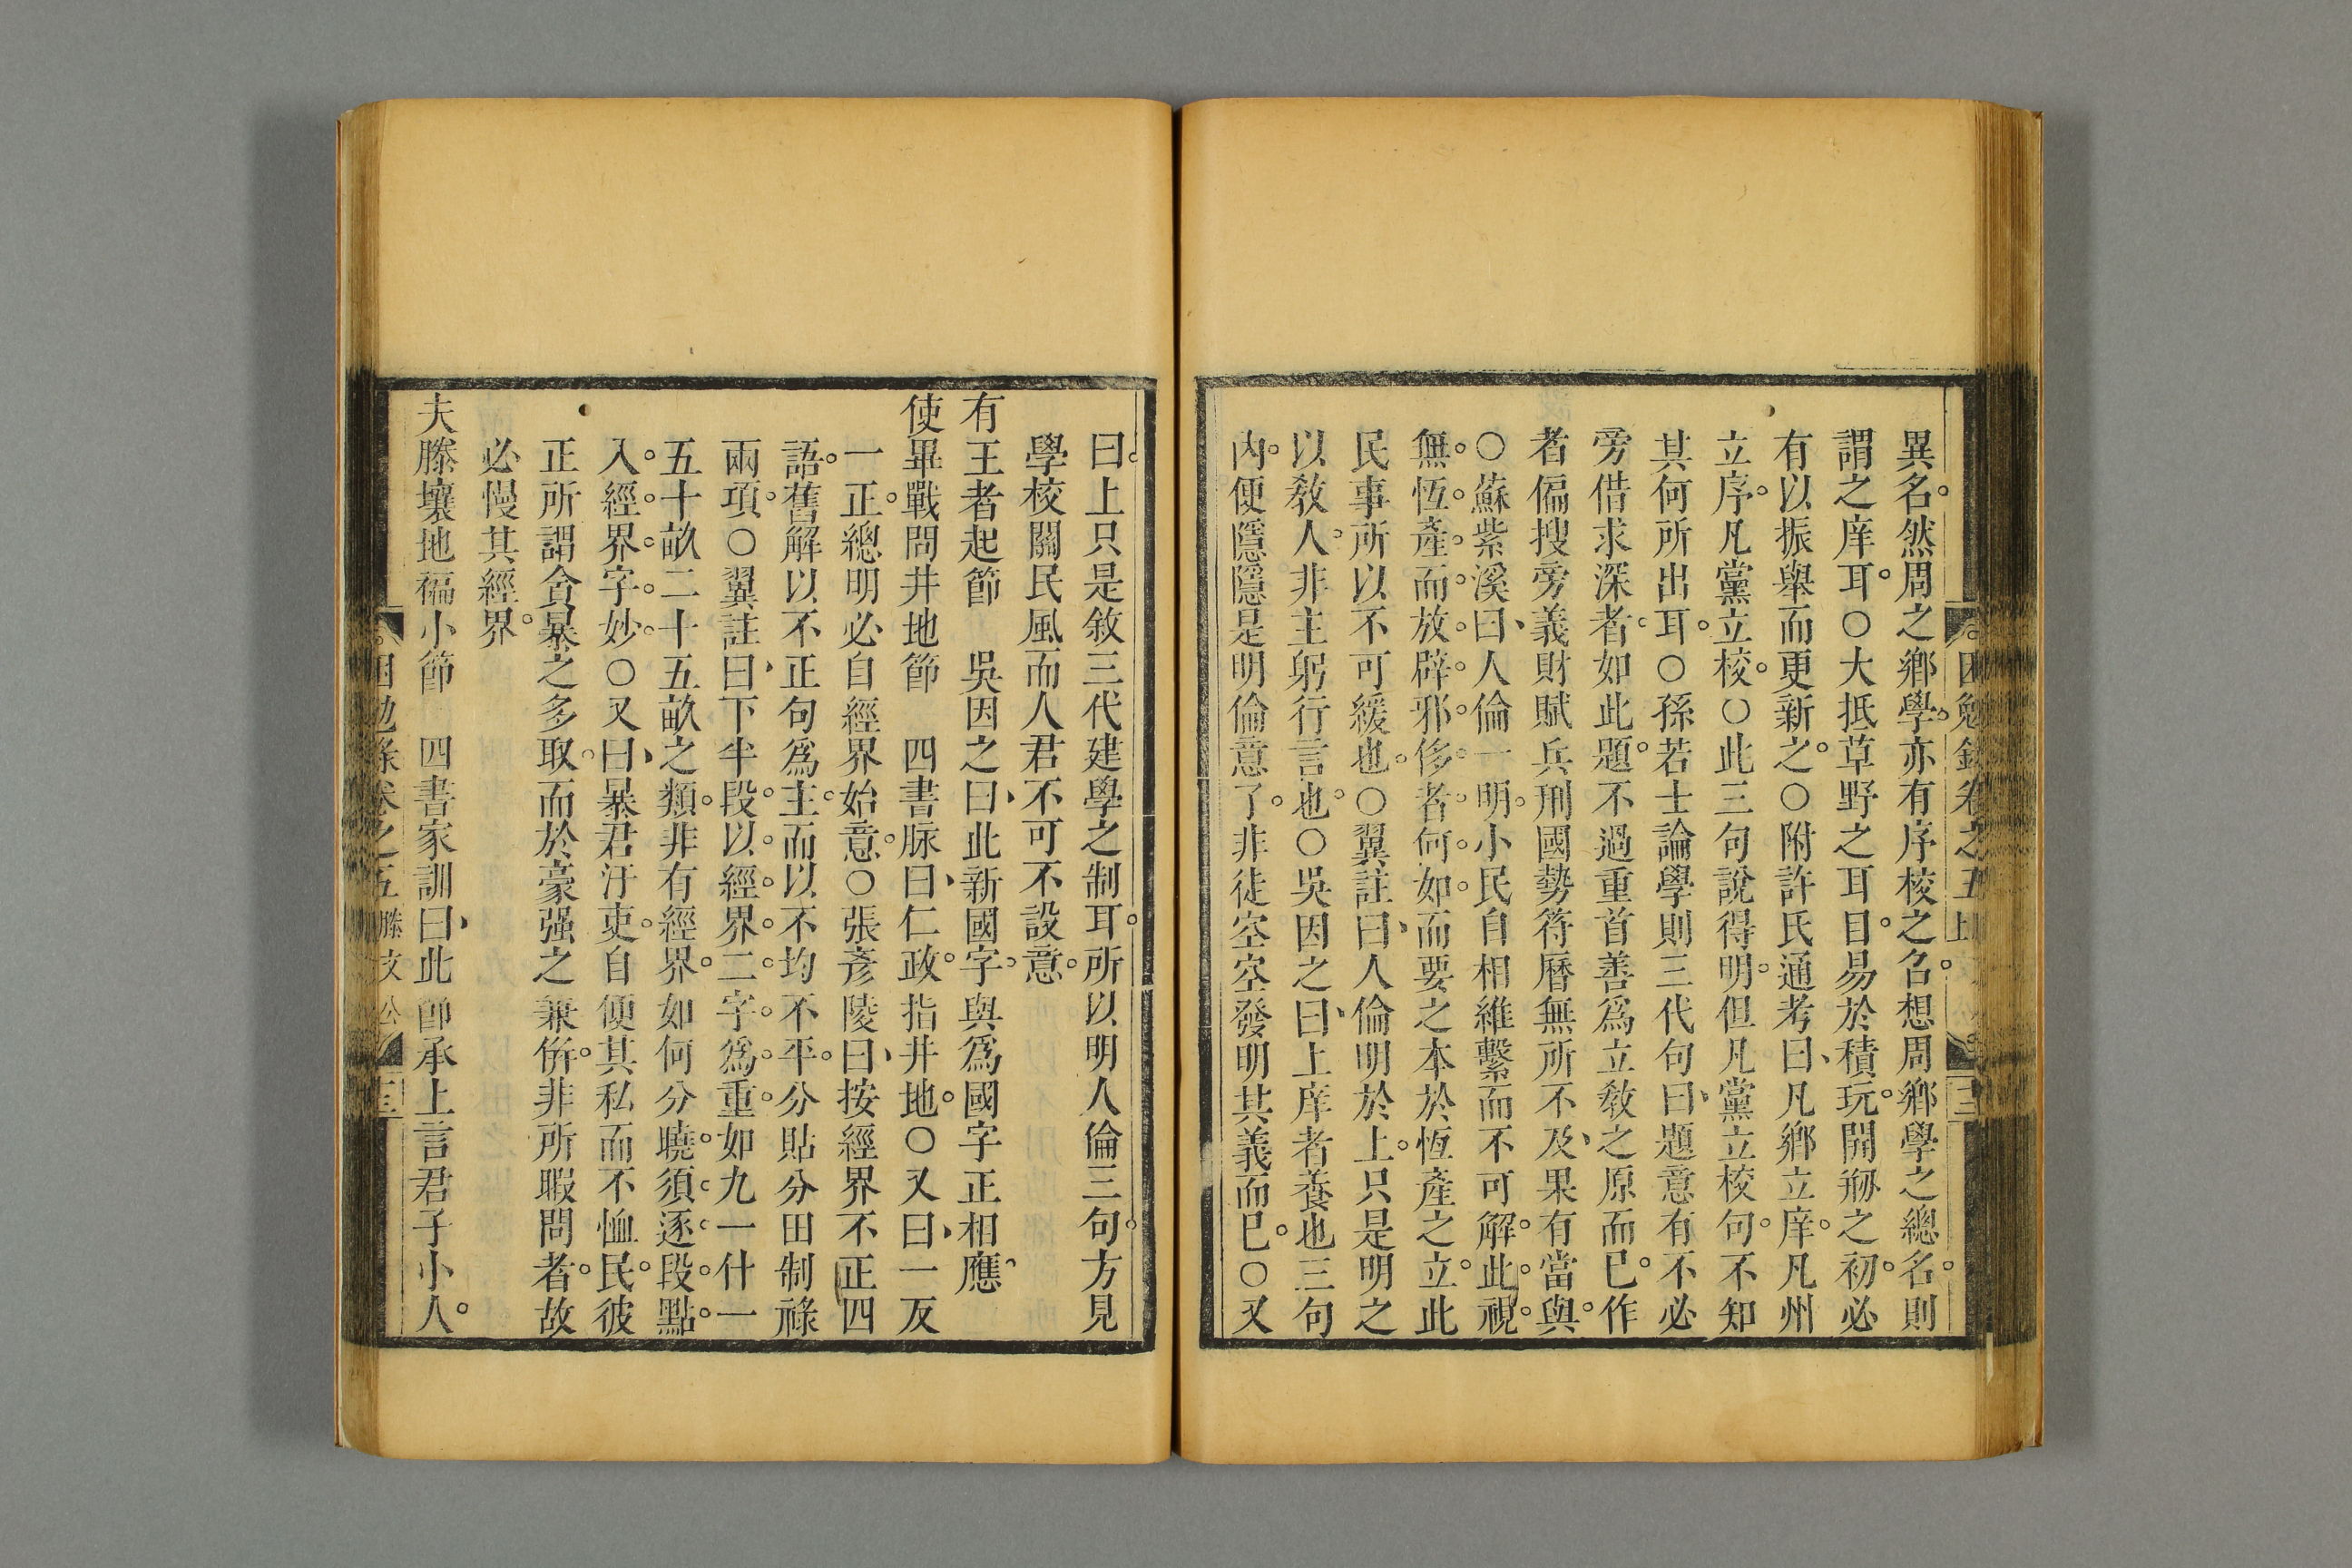 異名然周之鄉學亦有序校之名想周鄉學之總名則
謂之庠耳○大抵草野之耳目易於積玩開剏之初必
有以振舉而更新之○附許氏通考曰凡鄉立庠凡州
立序凡黨立校○此三句說得明但凡黨立校句不知
其何所出耳○孫若士論學則三代句曰題意有不必
旁借求深者如此題不過重首善為立敎之原而已作
者偏搜旁義財賦兵刑國勢符曆無所不及果有當與
○蘇紫溪曰人倫一明小民自相維繫而不可解此視
無恆產而放辟邪侈者何如而要之本於恆產之立此
民事所以不可緩也○翼註曰人倫明於上只是明之
以敎人非主躬行言也○吳因之曰上庠者養也三句
內便隱隱是明倫意了非徒空空發明其義而已○又
曰上只是敘三代建學之制耳所以明人倫三句方見
學校關民風而人君不可不設意
有王者起節 吳因之曰此新國字與爲國字正相應
使畢戰問井地節 四書脉曰仁政指井地○又曰一反
一正總明必自經界始意○張彥陵曰按經界不正四
語舊解以不正句爲主而以不均不平分貼分田制祿
兩項○翼註曰下半段以經界二字爲重如九一什一
五十畝二十五畝之類非有經界如何分曉須逐段點
入經界字妙○又曰暴君汙吏自便其私而不恤民彼
正所謂貪暴之多取而於豪强之兼倂非所暇問者故
必慢其經界
夫滕壤地褊小節 四書家訓曰此卽承上言君子小人
困勉錄卷之五 滕文公